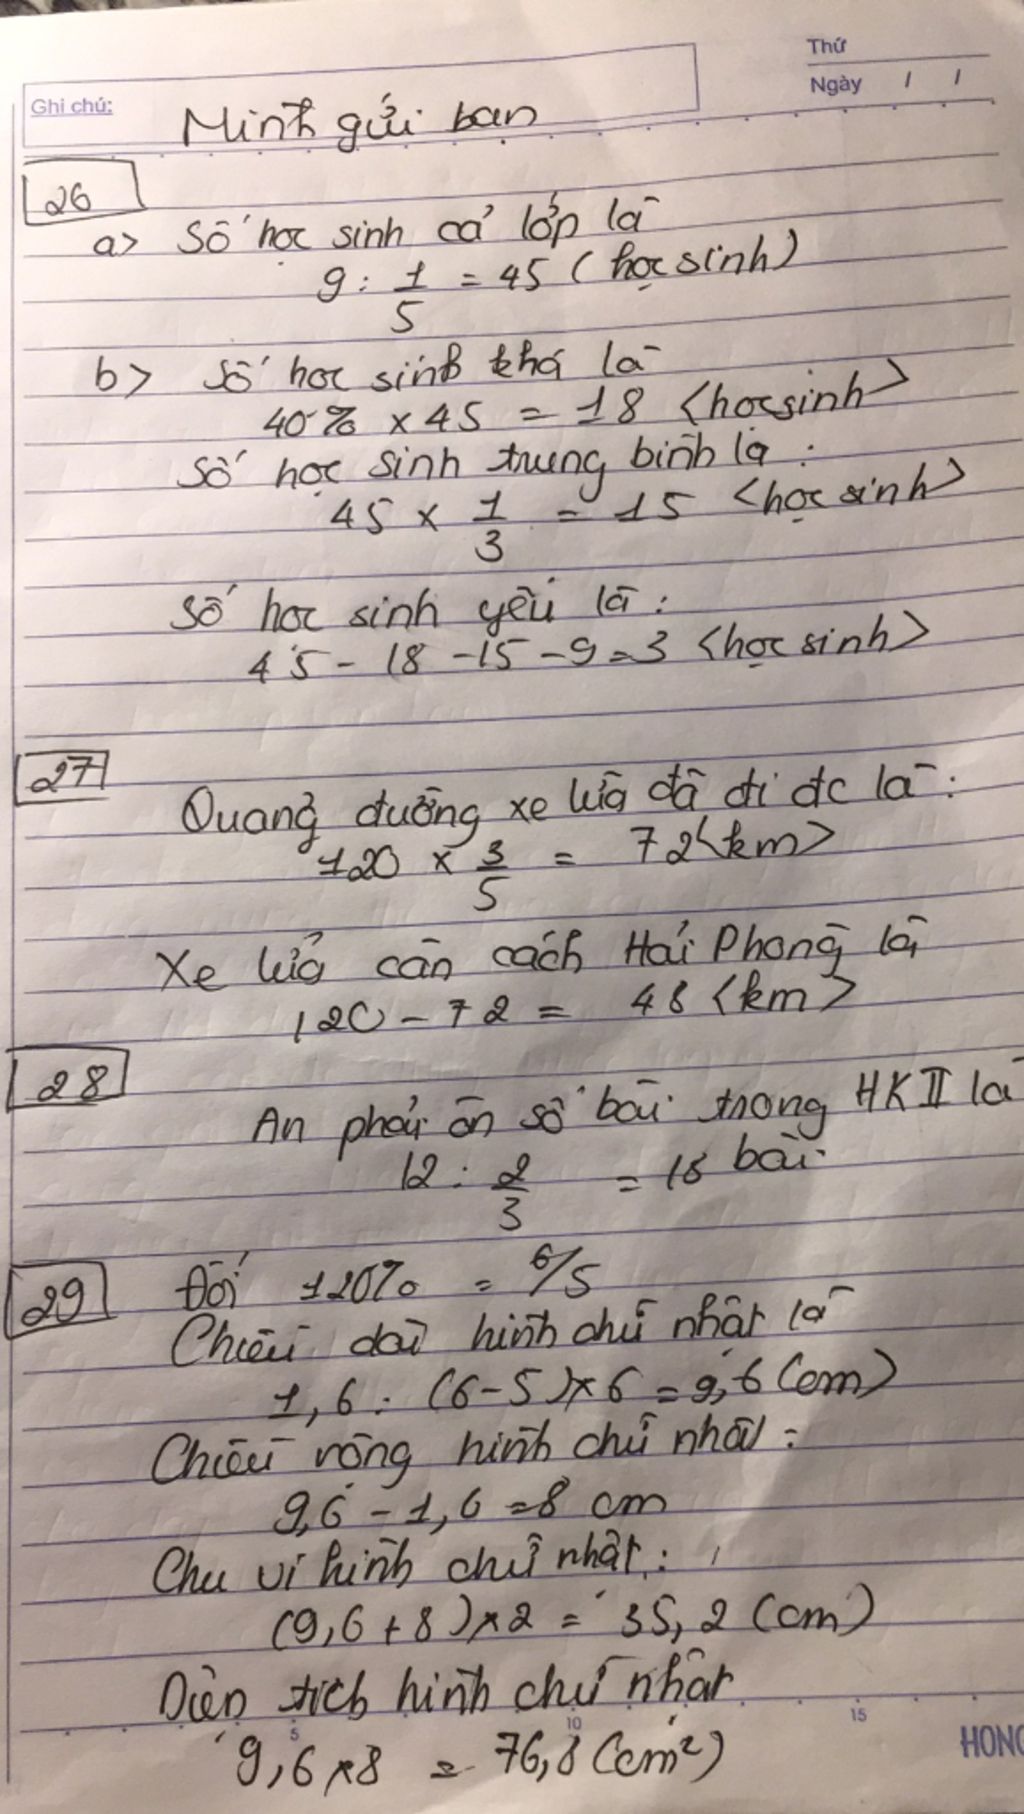 Thứ
Ngày / /
Ghi chú:
Mình gửi bạn
26
a> Số học sinh cả lớp là
9 : 1/5 = 45 (học sinh)
b> Số học sinh khá là
40% x 45 = 18 <học sinh>
Số học sinh trung bình là :
45 x 1/3 = 15 <học sinh>
Số học sinh yếu là :
45 - 18 - 15 - 9 = 3 <học sinh>
27
Quãng đường xe lửa đã đi đc là :
120 x 3/5 = 72 <km>
Xe lửa còn cách Hải Phòng là
120 - 72 = 48 <km>
28
An phải ôn số bài trong HK II là
12 : 2/3 = 18 bài
29 Đổi 120% = 6/5
Chiều dài hình chữ nhật là
1,6 : (6-5) x 6 = 9,6 (cm)
Chiều rộng hình chữ nhật :
9,6 - 1,6 = 8 cm
Chu vi hình chữ nhật :
(9,6 + 8) x 2 = 35,2 (cm)
Diện tích hình chữ nhật
9,6 x 8 = 76,8 (cm²)
5 10 15
HONG